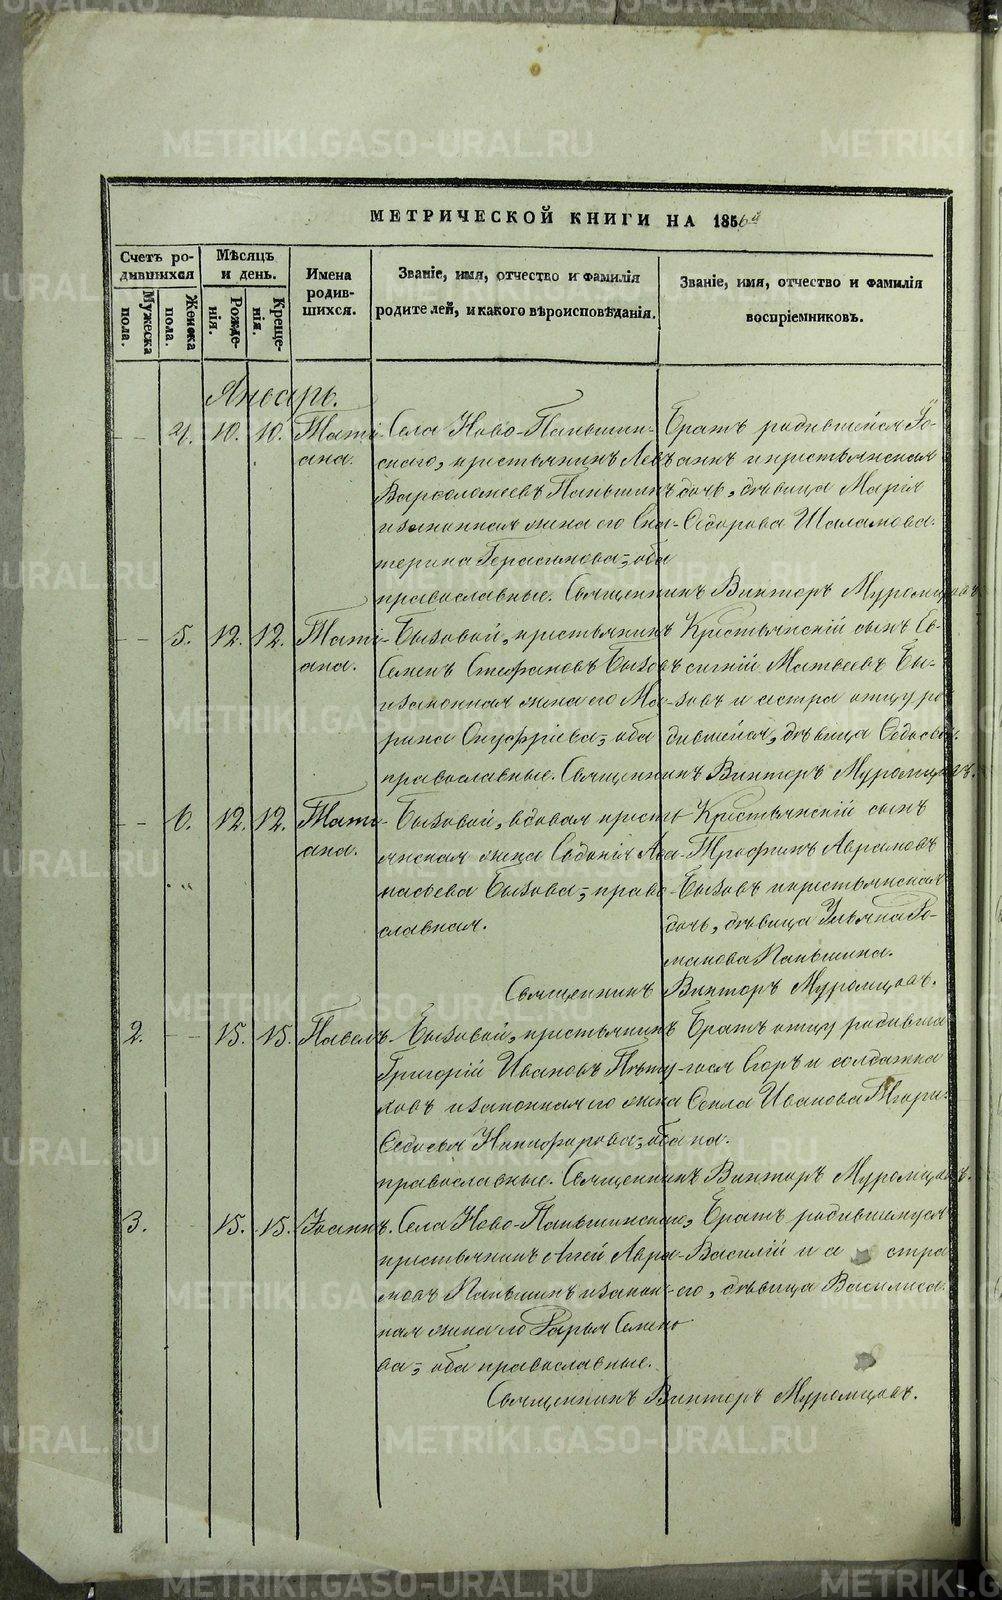 МЕТРИЧЕСКОЙ КНИГИ НА 1856й
Счетъ ро-
дившихся
Мужеска
пола.
Женска
пола.
Мѣсяцъ
и день.
Рожде-
нія.
Креще-
нія.
Имена
родив-
шихся.
Званіе, имя, отчество и фамилія
родителей, и какого вѣроисповѣданія.
Званіе, имя, отчество и фамилія
воспріемниковъ.
Январь.
4. 10. 10. Тати-
ана.
Села Ново-Паньшин-
скаго, крестьянинъ Левъ
Варѳоломеевъ Паньшинъ
и законная жена его Ека-
терина Герасимова, оба
православные.
Братъ родившейся Іо-
аннъ и крестьянская
дочь, дѣвица Марія
Ѳедорова Шаламова.
Священникъ Викторъ Муромцовъ.
5. 12. 12. Тати-
ана.
Бызовой, крестьянинъ
Семенъ Стефановъ Бызовъ
и законная жена его Ма-
рина Онуфріева, оба
православные.
Крестьянскій сынъ Ев-
сигній Матвеевъ Бы-
зовъ и сестра отцу ро-
дившейся, дѣвица Ѳедосья.
Священникъ Викторъ Муромцовъ.
6. 12. 12. Тати-
ана.
Бызовой, вдовая кресть-
янская жена Евдокія Аѳа-
насьева Бызова, право-
славная.
Крестьянскій сынъ
Трофимъ Аврамовъ
Бызовъ и крестьянская
дочь, дѣвица Ульяна Ро-
манова Паньшина.
Священникъ Викторъ Муромцовъ.
2. 15. 15. Павелъ.
Бызовой, крестьянинъ
Григорій Ивановъ Пѣту-
ховъ и законная его жена
Ѳедосья Никифорова, оба
православные.
Братъ отцу родивша-
гося Егоръ и солдатка
Ѳекла Иванова
Священникъ Викторъ Муромцовъ.
3. 15. 15. Іоаннъ.
Села Ново-Паньшинскаго,
крестьянинъ Аггей Авра-
мовъ Паньшинъ и закон-
ная жена его Дарья Семено-
ва, оба православные.
Братъ родившемуся
Василій и сестра
его, дѣвица Василиса.
Священникъ Викторъ Муромцовъ.
METRIKI.GASO-URAL.RU